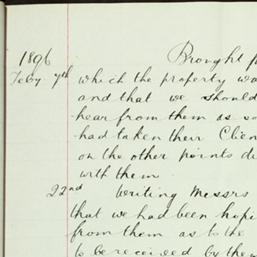 1896
Brought f
Feby 7th which the property wa
and that we should
hear from them as so
had taken their Clien
on the other points di
with them
22nd Writing Messrs
that we had been hopi
from them as to the
to be received by them